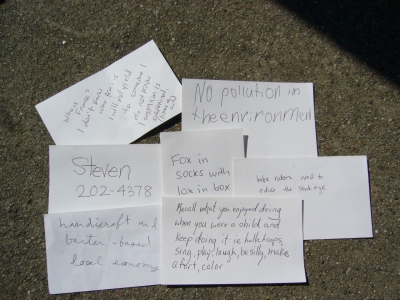 Who is
Frank?
I don't know
who Fox is
I will not yield
to someone I
do not know
No pollution in
the environment
Steven
202-4378
Fox in
socks with
lox in box
bike riders need to
educe the
handicraft and
barter-based
local economy
Recall what you enjoyed doing
when you were a child and
keep doing it ie hulahoops,
sing, play, laugh, be silly, make
a fort, color